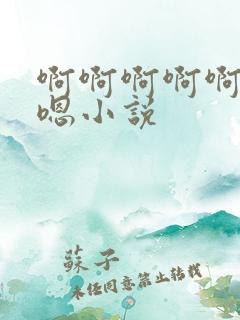 啊啊啊啊啊
嗯小说
蘇子
未经同意禁止转载